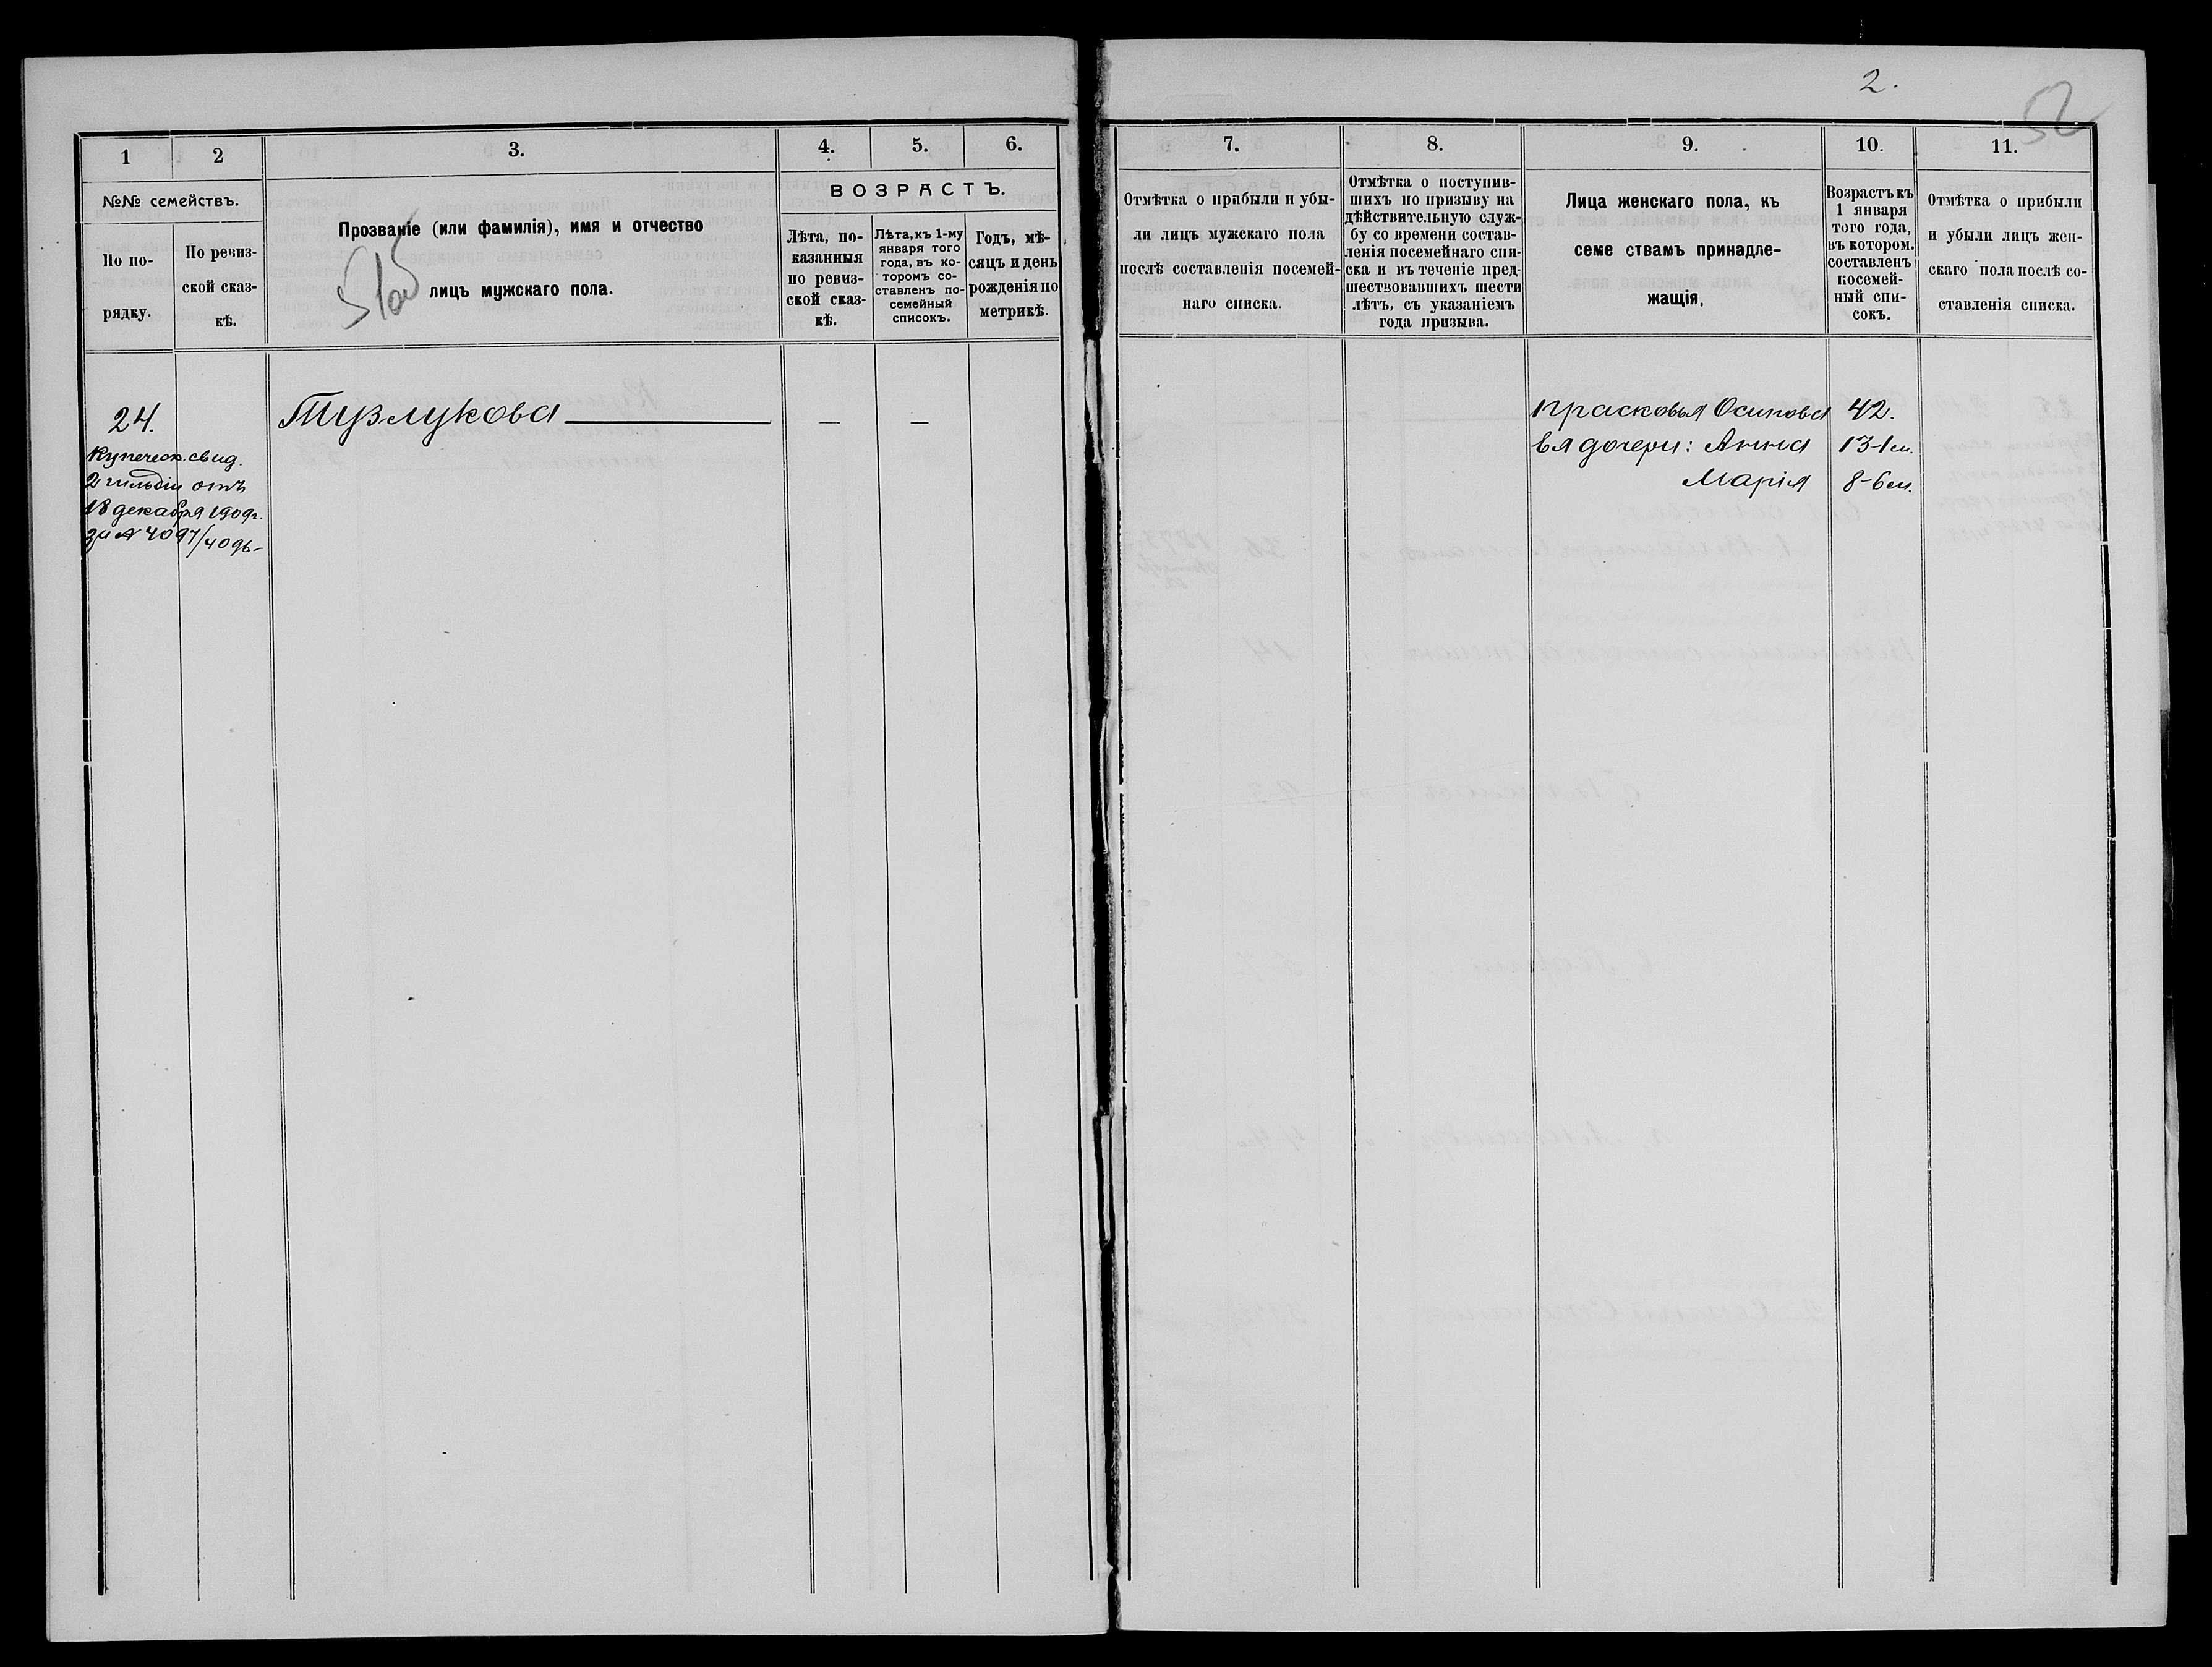 2.
52
1
2
3.
4.
5.
6.
№№ семействъ.
По по-
рядку.
По ревиз-
ской сказ-
кѣ.
Прозваніе (или фамилія), имя и отчество
лицъ мужскаго пола.
51об
ВОЗРАСТЪ.
Лѣта, по-
казанныя
по ревиз-
ской сказ-
кѣ.
Лѣта, къ 1-му
января того
года, въ ко-
торомъ со-
ставленъ по-
семейный
списокъ.
Годъ, мѣ-
сяцъ и день
рожденія по
метрикѣ.
24.
Купеческ. свид.
2 гильдіи отъ
18 декабря 1909г.
за № 4097/4096-
Тузлукова
—
—
7.
8.
9.
10.
11.
Отмѣтка о прибыли и убы-
ли лицъ мужскаго пола
послѣ составленія посемей-
наго списка.
Отмѣтка о поступив-
шихъ по призыву на
дѣйствительную служ-
бу со времени состав-
ленія посемейнаго спи-
ска и въ теченіе пред-
шествовавшихъ шести
лѣтъ, съ указаніемъ
года призыва.
Лица женскаго пола, къ
семе ствамъ принадле-
жащія.
Возрастъ къ
1 января
того года,
въ котором.
составленъ
посемей-
ный спи-
сокъ.
Отмѣтка о прибыли
и убыли лицъ жен-
скаго пола послѣ со-
ставленія списка.
Прасковья Осипова 42.
Ея дочери: Анна 13-1м.
Марія 8-6м.